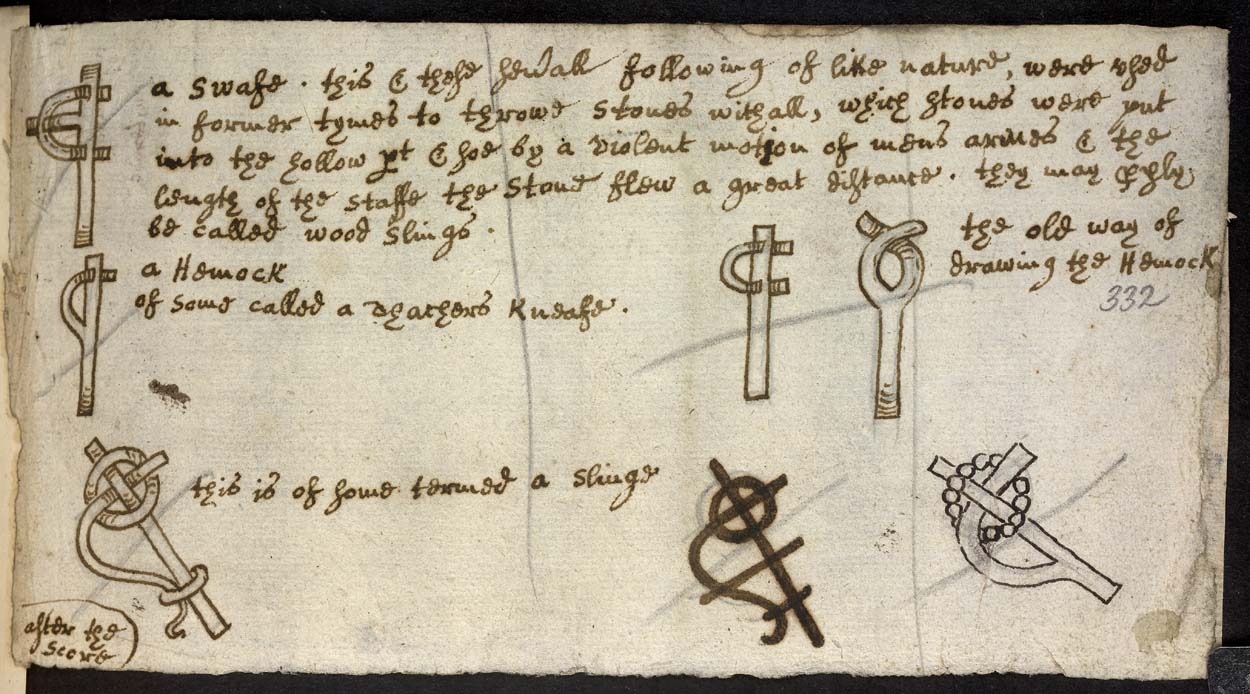 a Swafe . this & these sevall following of like nature, were vsed
in former tymes to throwe Stones withall, which stones were put
into the hollow pt & soe by a violent motion of mens armes & the
length of the staffe the Stone flew a great distance . they may pply
be called wood Slings .
the old way of
drawing the Hemock
332
a Hemock
of some called a Thachers Kneafe .
this is of some termed a Slinge
after the
Score